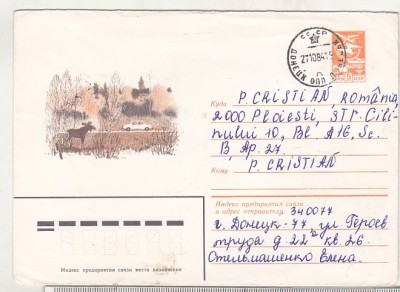 СССР
ДОНЕЦК
27108417
Куда P. CRISTIAN România,
2000 Ploiesti, STR. Cili-
nului 10, Bl A16, Sc.
B Ap. 27.
Кому P. CRISTIAN
Индекс предприятия связи
и адрес отправителя 340077
г. Донецк-77 ул Героев
труда д. 22 кв 26.
Отельмашенко Елена.
Индекс предприятия связи места назначения